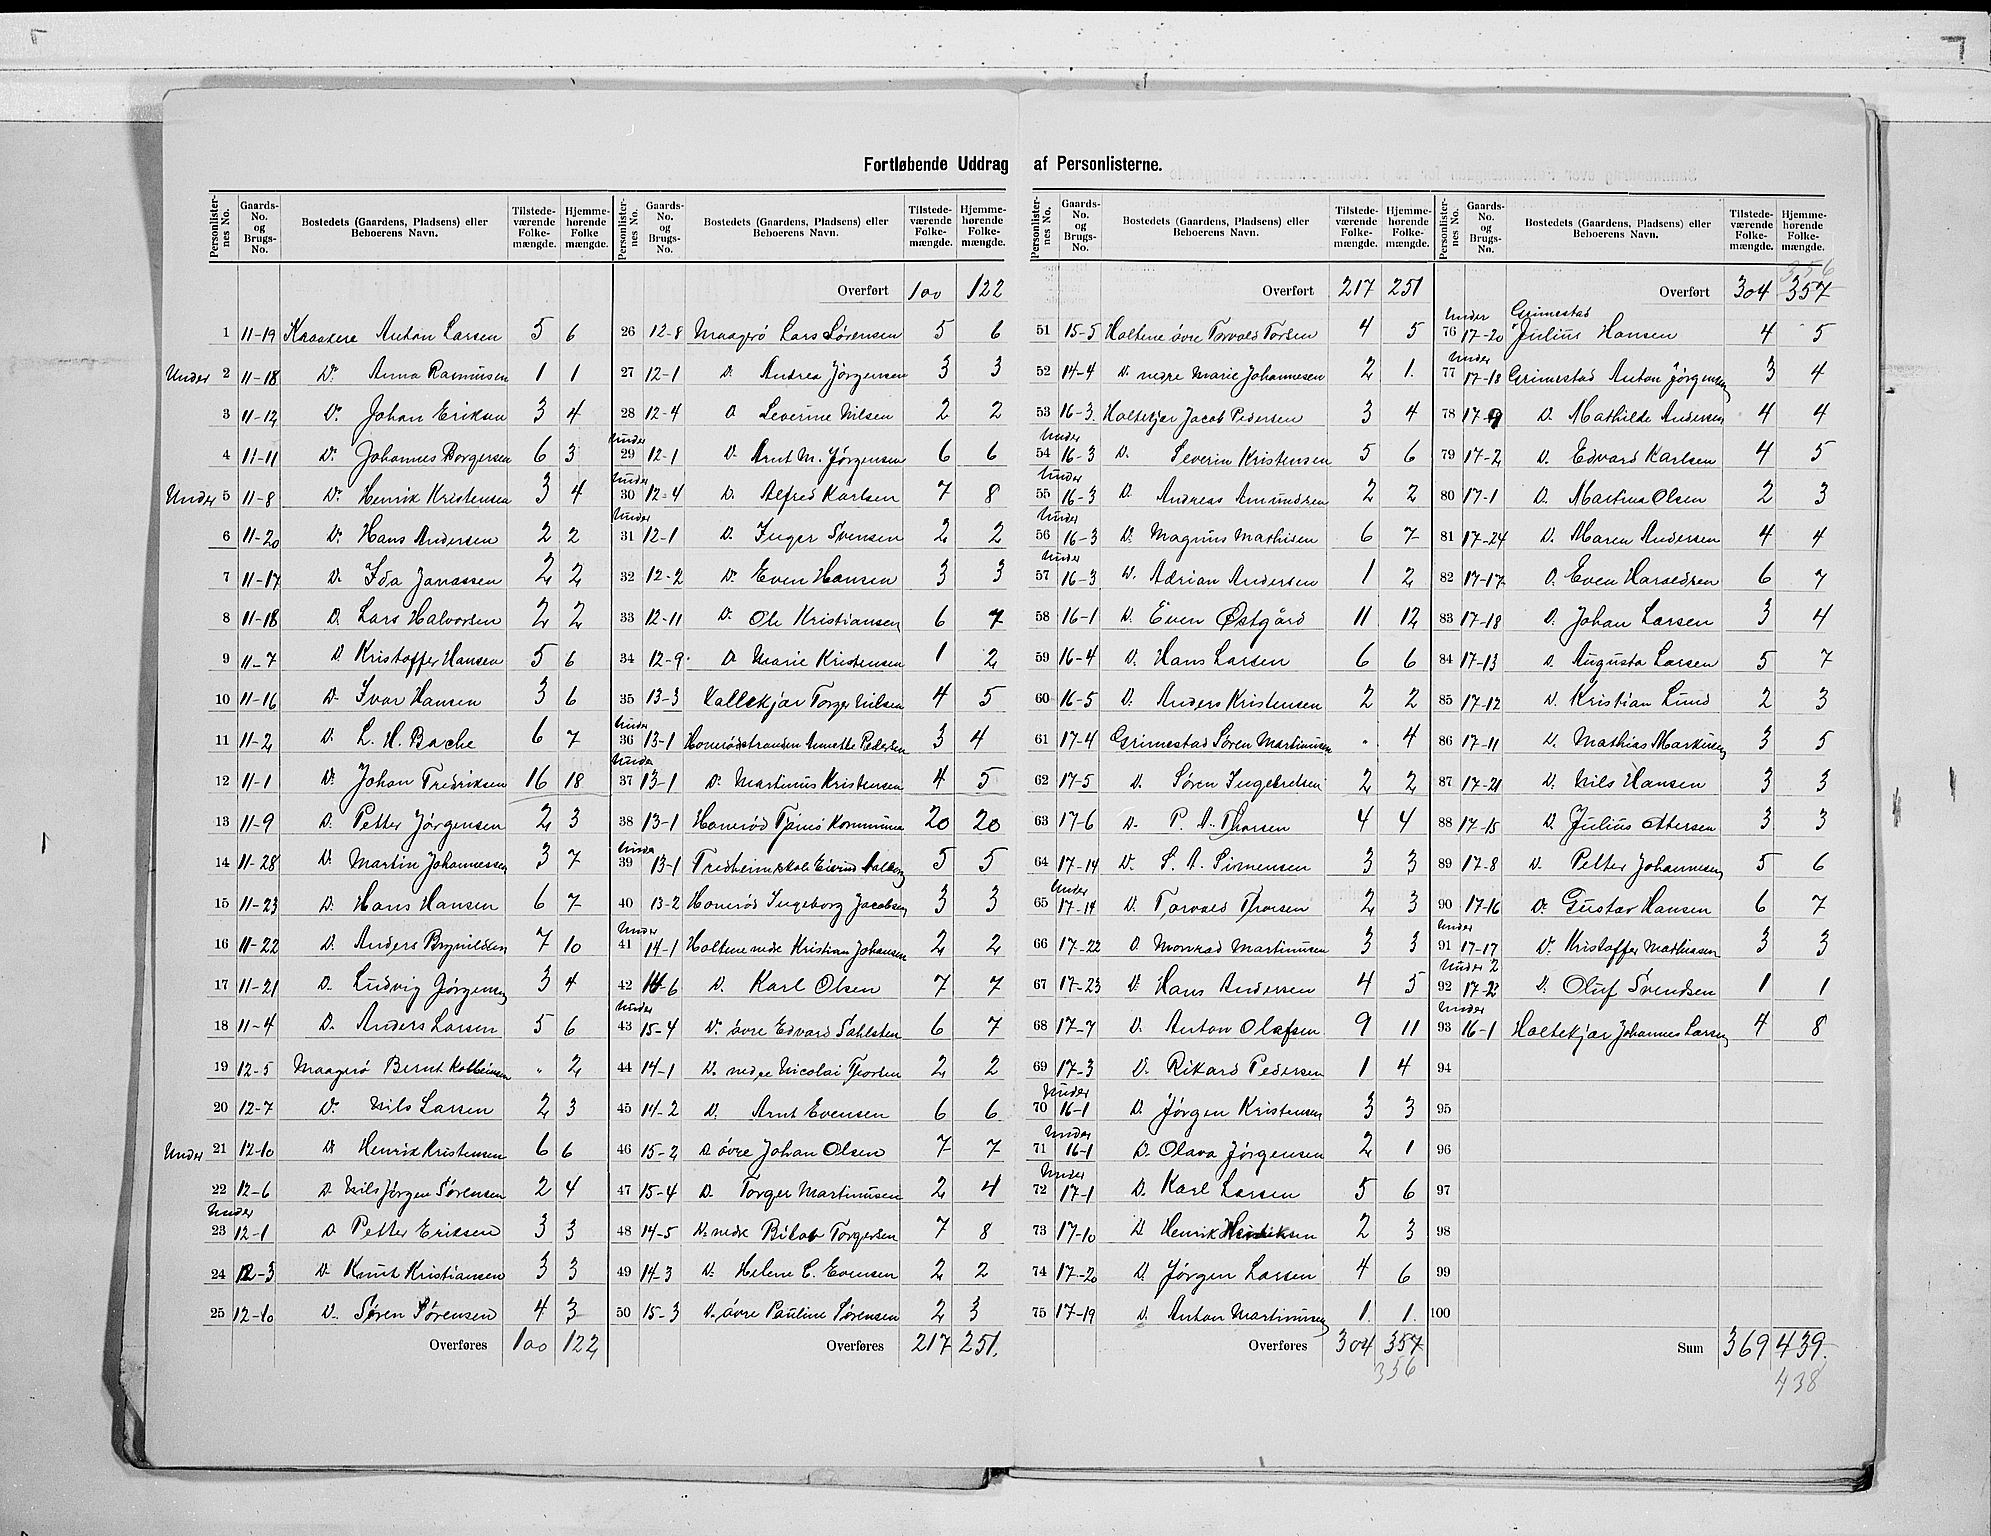 Fortløbende Uddrag af Personlisterne.
Personlister-nes No. | Gaards-No. og Brugs-No. | Bostedets (Gaardens, Pladsens) eller Beboerens Navn. | Tilstede-værende Folke-mængde. | Hjemme-hørende Folke mængde.
1 11-19 Kaaxere Anton Larsen 5 6
Under 2 11-18 Do Anna Rasmussen 1 1
3 11-12 Do Johan Eriksen 3 4
4 11-11 Do Johannes Borgersen 6 3
Under 5 11-8 Do Henrik Kristensen 3 4
6 11-20 Do Hans Andersen 2 2
7 11-17 D. Ida Janassen 2 2
8 11-18 D. Lars Halvorsen 2 2
9 11-7 D. Kristoffer Hansen 5 6
10 11-16 D. Ivar Hansen 3 6
11 11-2 D. L. H. Bache 6 7
12 11-1 D. Johan Fredriksen 16 18
13 11-9 D. Petter Jørgensen 2 3
14 11-28 D. Martin Johannessen 3 7
15 11-23 D. Hans Hansen 6 7
16 11-22 D. Anders Brynildsen 7 10
17 11-21 D. Ludvig Jørgensen 3 4
18 11-4 D. Anders Larsen 5 6
19 12-5 Maagerö Bernt Kolbeinsen " 2
20 12-7 Do Nils Larsen 2 3
Under 21 12-10 D. Henrik Kristensen 6 6
22 12-6 D. Nils Jörgen Sörensen 2 4
Under
23 12-1 D. Petter Eriksen 3 3
24 12-3 D. Knut Kristiansen 3 3
25 12-10 D. Søren Sørensen 4 3
Overføres 100 122
Personlister-nes No. | Gaards-No. og Brugs-No. | Bostedets (Gaardens, Pladsens) eller Beboerens Navn. | Tilstede-værende Folke-mængde. | Hjemme-hørende Folke-mængde.
Overført 100 122
26 12-8 Maagerö Lars Sørensen 5 6
27 12-1 D. Andrea Jørgensen 3 3
28 12-4 D Severine Nilsen 2 2
Under
29 12-1 D. Arnt M. Jørgensen 6 6
Under
30 12-4 D. Alfred Karlsen 7 8
Under
31 12-1 D. Inger Svensen 2 2
32 12-2 D. Even Hansen 3 3
33 12-11 D. Ole Kristiansen 6 7
34 12-9 D Marie Kristensen 1 2
35 13-3 Kallekjær Torger Nilsen 4 5
Under
36 13-1 Honerödstranden Annette Pedersen 3 4
Under
37 13-1 D. Martinius Kristensen 4 5
38 13-1 Honeröd Tjømö Kommune 20 20
Under
39 13-1 Fredheim skole Eivind 5 5
40 13-2 Honeröd Ingeborg Jacobsen 3 3
Under
41 14-1 Holtene nedre Kristian Johansen 2 2
42 14-6 D. Karl Olsen 7 7
Under
43 15-4 D. övre Edvard Sahlsten 6 7
44 14-1 D. nedre Nicolai Thorsen 2 2
45 14-2 D. Arnt Evensen 6 6
46 15-2 D. övre Johan Olsen 7 7
47 15-4 D. Torger Martinusen 2 4
48 14-5 D. nedre Torgersen 7 8
49 14-3 D. Helene C. Evensen 2 2
50 15-3 D. övre Pauline Sørensen 2 3
Overføres 217 251.
Personlister-nes No. | Gaards-No. og Brugs-No. | Bostedets (Gaardens, Pladsens) eller Beboerens Navn. | Tilstede-værende Folke-mængde. | Hjemme-hørende Folke-mængde.
Overført 217 251
51 15-5 Holtene övre Torvald Torsen 4 5
52 14-4 D. nedre Marie Johannesen 2 1.
53 16-3. Holtekjær Jacob Pedersen 3 4
Under
54 16-3 D. Severin Kristensen 5 6
Under
55 16-3 D. Andreas Amundsen 2 2
Under
56 16-3 D. Magnus Mathisen 6 7
Under
57 16-3 D. Adrian Andersen 1 2
58 16-1 D. Even Østgård 11 12
59 16-4 D. Hans Larsen 6 6
60 16-5 D. Anders Kristensen 2 2
61 17-4 Grimestad Sören Martinusen " 4
62 17-5 D. Søren Ingebretsen 2 2
63 17-6 D. P. A. Thorsen 4 4
64 17-14 D. S. A. Simensen 3 3
Under
65 17-14 D. Torvald Thorsen 2 3
66 17-22 D Monrad Martinusen 3 3
67 17-23 D. Hans Andersen 4 5
68 17-7 D. Anton Olafsen 9 11
69 17-3 D. Rikard Pedersen 1 4
Under
70 16-1 D. Jørgen Kristensen 3 3
Under
71 16-1 D. Olava Jørgensen 2 1
Under
72 17-1 D. Karl Larsen 5 6
73 17-10 D. Henrik Henriksen 2 3
74 17-20 D. Jørgen Larsen 4 6
75 17-19 D. Anton Martinusen 1. 1.
Overføres 304 357
356
Personlister-nes No. | Gaards-No. og Brugs-No. | Bostedets (Gaardens, Pladsens) eller Beboerens Navn. | Tilstede-værende Folke-mængde. | Hjemme-hørende Folke-mængde.
356
Overført 304 357
Under Grimestad
76 17-20 Julius Hansen 4 5
Under
77 17-18 Grimestad Anton Jørgensen 3 4
78 17-9 D. Mathilde Andersen 4 4
79 17-2 D. Edvard Karlsen 4 5
80 17-1 D. Martina Olsen 2 3
81 17-24 D. Maren Andersen 4 4
82 17-17 D. Even Haraldsen 6 7
83 17-18 D. Johan Larsen 3 4
84 17-13 D. Augusta Larsen 5 7
85 17-12 D. Kristian Lund 2 3
86 17-11 D. Mathias Markusen 3 5
87 17-21 D. Nils Hansen 3 3
88 17-15 D. Julius Ottersen 3 3
89 17-8 D. Petter Johannesen 5 6
90 17-16 D. Gustav Hansen 6 7
Under
91 17-17 D. Kristoffer Mathiasen 3 3
Under 2
92 17-2 D. Oluf Svendsen 1 1
Under
93 16-1 Holtekjær Johannes Larsen 4 8
94
95
96
97
98
99
100
Sum 369 439.
438